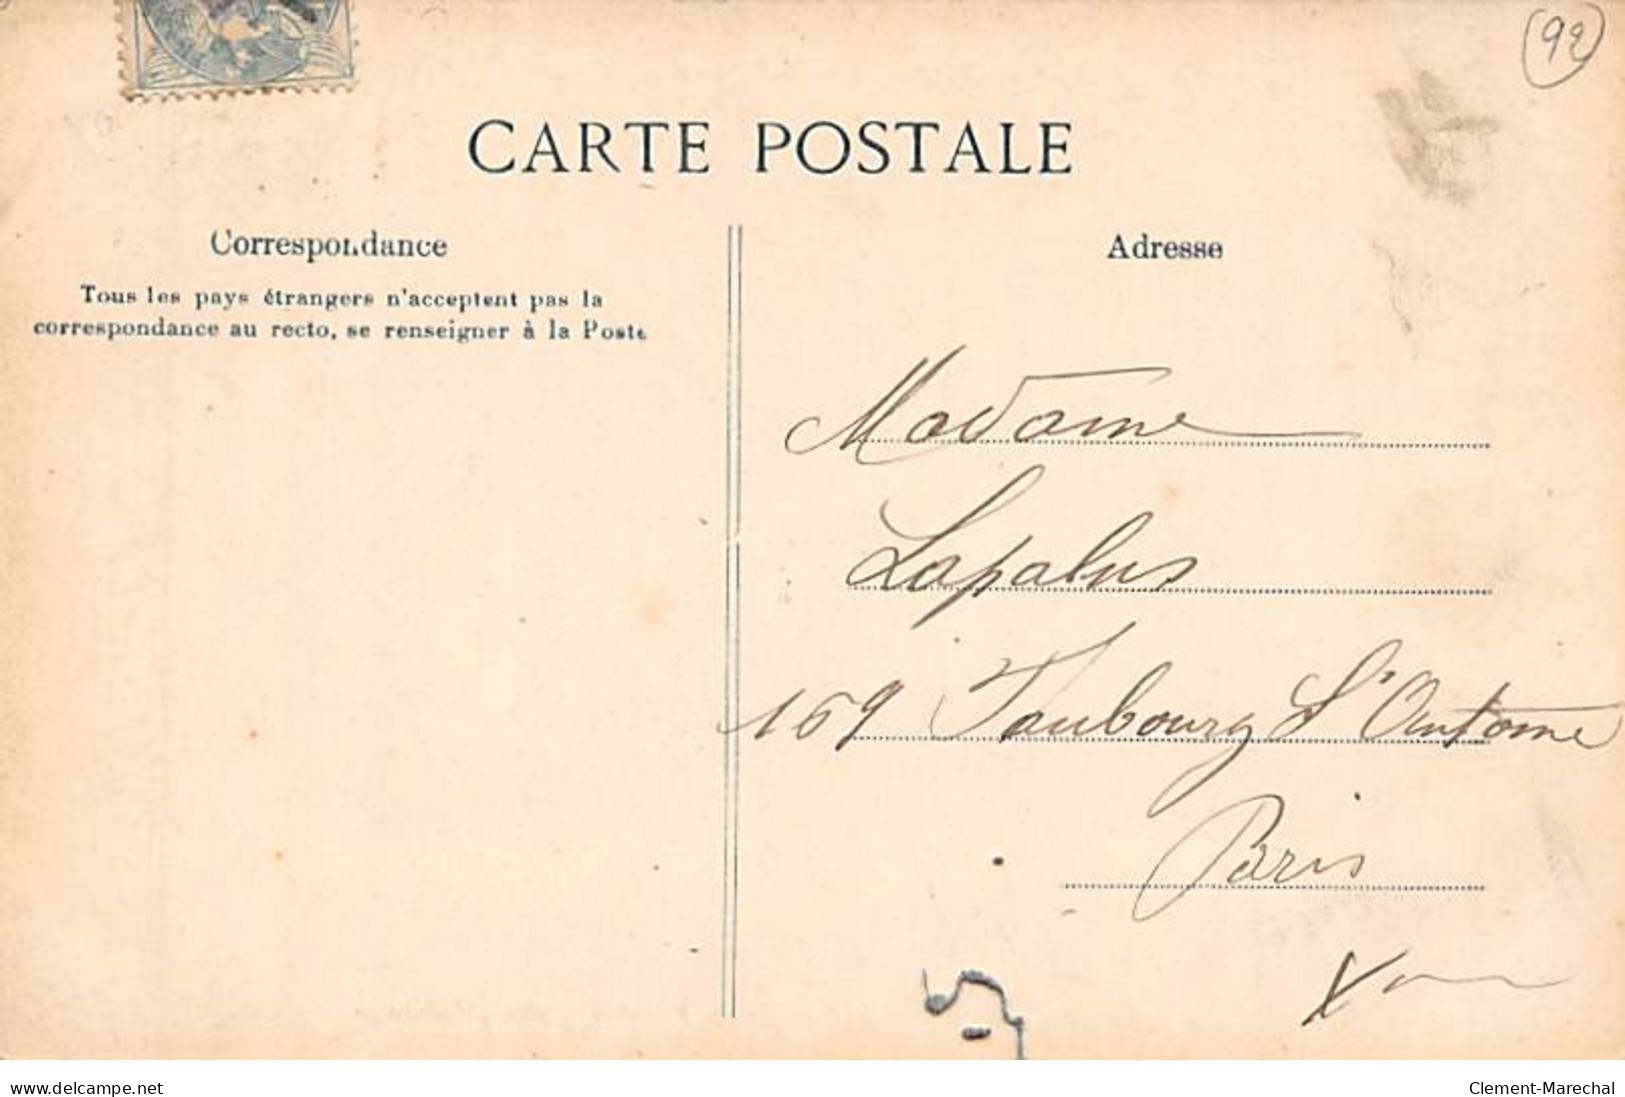 92
CARTE POSTALE
Correspondance
Tous les pays étrangers n'acceptent pas la
correspondance au recto, se renseigner à la Poste
Adresse
Madame
Lapalus
169 Faubourg St Antoine
Paris
www.delcampe.net
Clement-Marechal